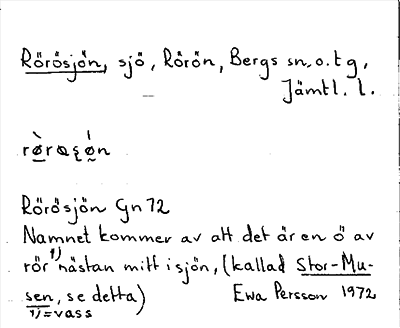 Rörösjön, sjö, Rörön, Bergs sn. o. tg,
Jämtl. l.
Rörösjön Gn 72
Namnet kommer av att det är en ö av
rör 1) nästan mitt i sjön, (kallad Stor-Mu-
sen, se detta) Ewa Persson 1972
1) = vass